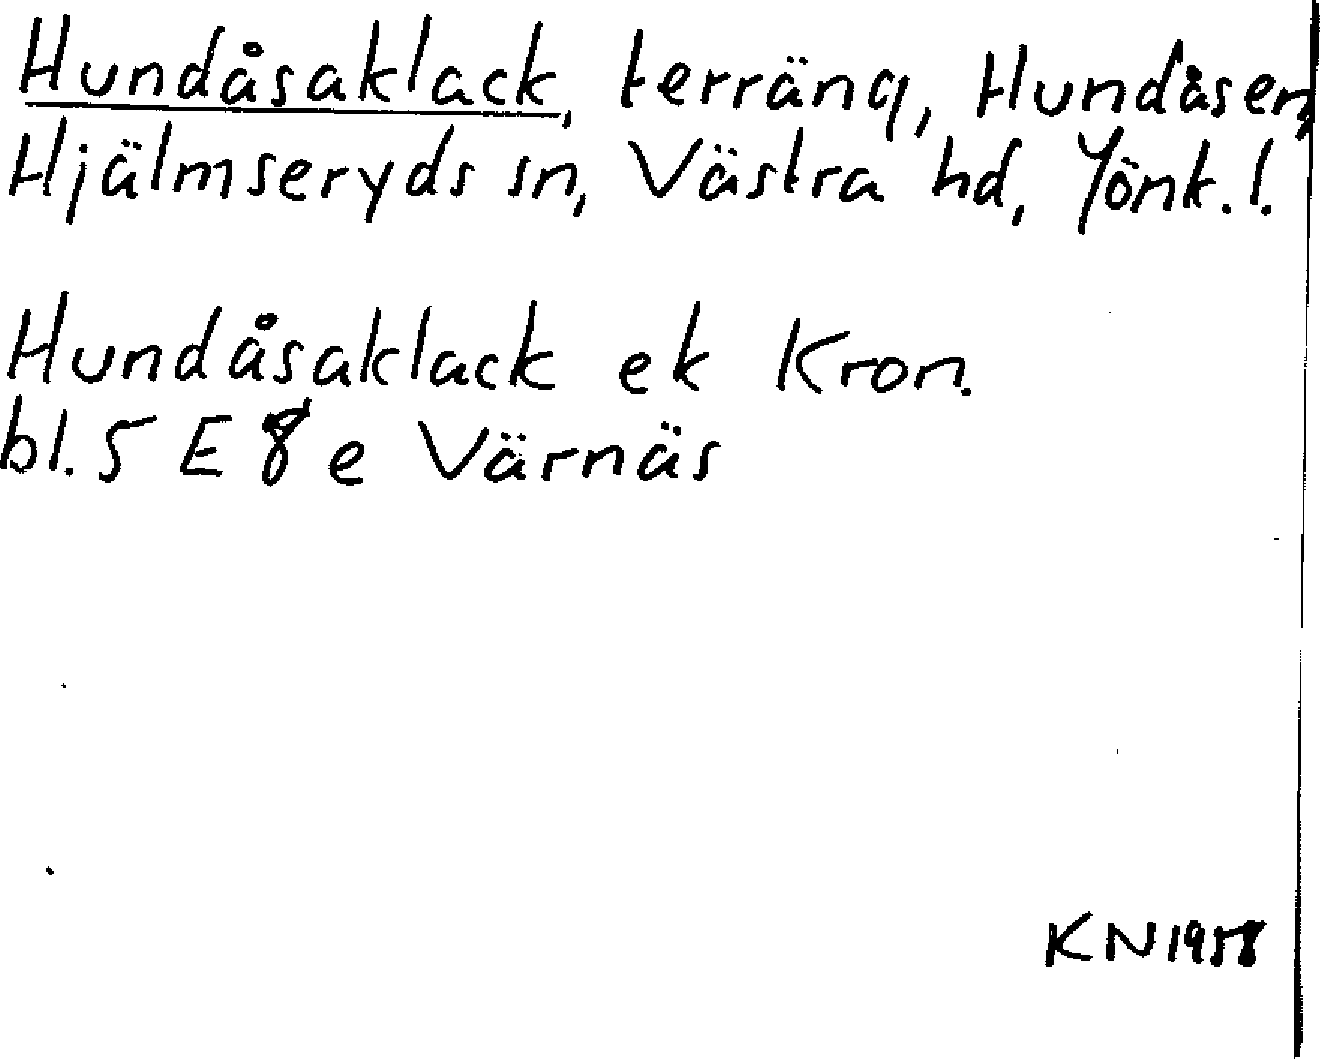 Hundåsaklack, terräng, Hundåsen,
Hjälmseryds sn, Västra hd, Jönk.l.
Hundåsaklack ek Kron.
bl. 5 E 8 e Värnäs
KN 1958